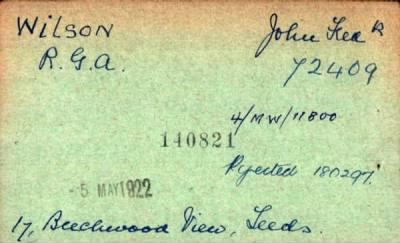 WILSON John Kea R
R.G.A. 72409
4/MW/11800
140821
Rejected 180297.
- 5 MAY 1922
17, Beechwood View, Leeds.